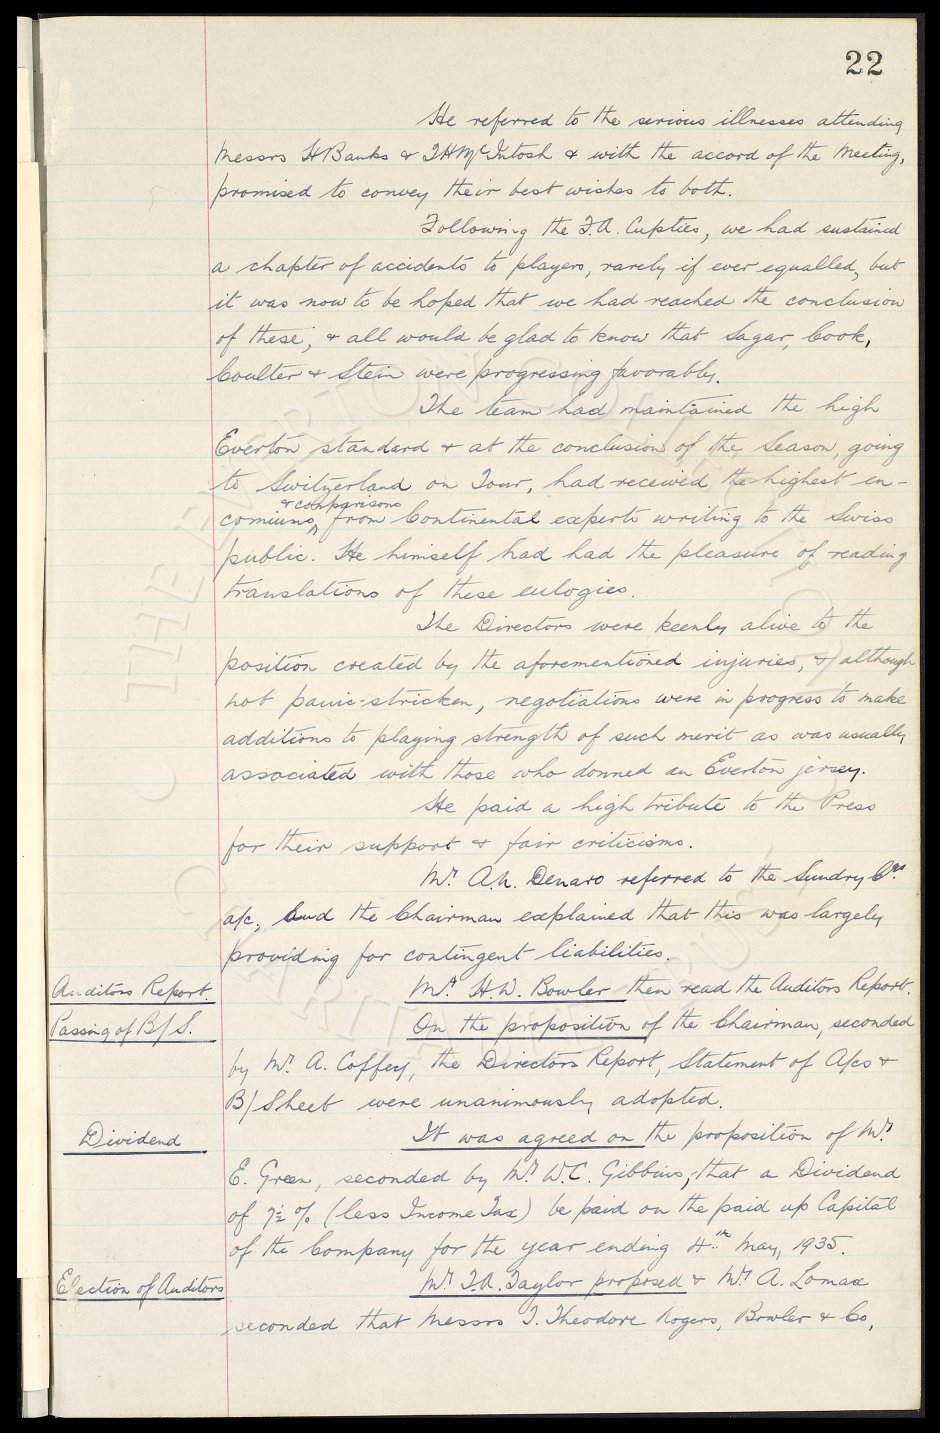 22
He referred to the serious illnesses attending
Messrs H Banks & T H McIntosh & with the accord of the Meeting,
promised to convey their best wishes to both.
Following the F.A. Cupties, we had sustained
a chapter of accidents to players, rarely if ever equalled, but
it was now to be hoped that we had reached the conclusion
of these, & all would be glad to know that Sagar, Cook,
Coulter & Stein were progressing favorably.
The team had maintained the high
Everton standard & at the conclusion of the Season, going
to Switzerland on Tour, had received the highest en-
& comparisons
comiums from Continental experts writing to the Swiss
public. He himself had had the pleasure of reading
translations of these eulogies.
The Directors were keenly alive to the
position created by the aforementioned injuries, & although
not panic-stricken, negotiations were in progress to make
additions to playing strength of such merit as was usually
associated with those who donned an Everton jersey.
He paid a high tribute to the Press
for their support & fair criticisms.
Mr. A.N. Denaro referred to the Sundry Crs
a/c, and the Chairman explained that this was largely
providing for contingent liabilities.
Auditors Report. Mr. H.W. Bowler then read the Auditors Report.
Passing of B/S. On the proposition of the Chairman, seconded
by Mr. A. Coffey, the Directors Report, Statement of A/cs &
B/Sheet were unanimously adopted.
Dividend It was agreed on the proposition of Mr.
E. Green, seconded by Mr. W.C. Gibbins, that a Dividend
of 7½ % (less Income Tax) be paid on the paid up Capital
of the Company for the year ending 4th May, 1935.
Election of Auditors Mr. F.A. Taylor proposed & Mr. A. Lomax
seconded that Messrs T. Theodore Rogers, Bowler & Co,
THE EVERTON COLLECTION
CHARITABLE TRUST